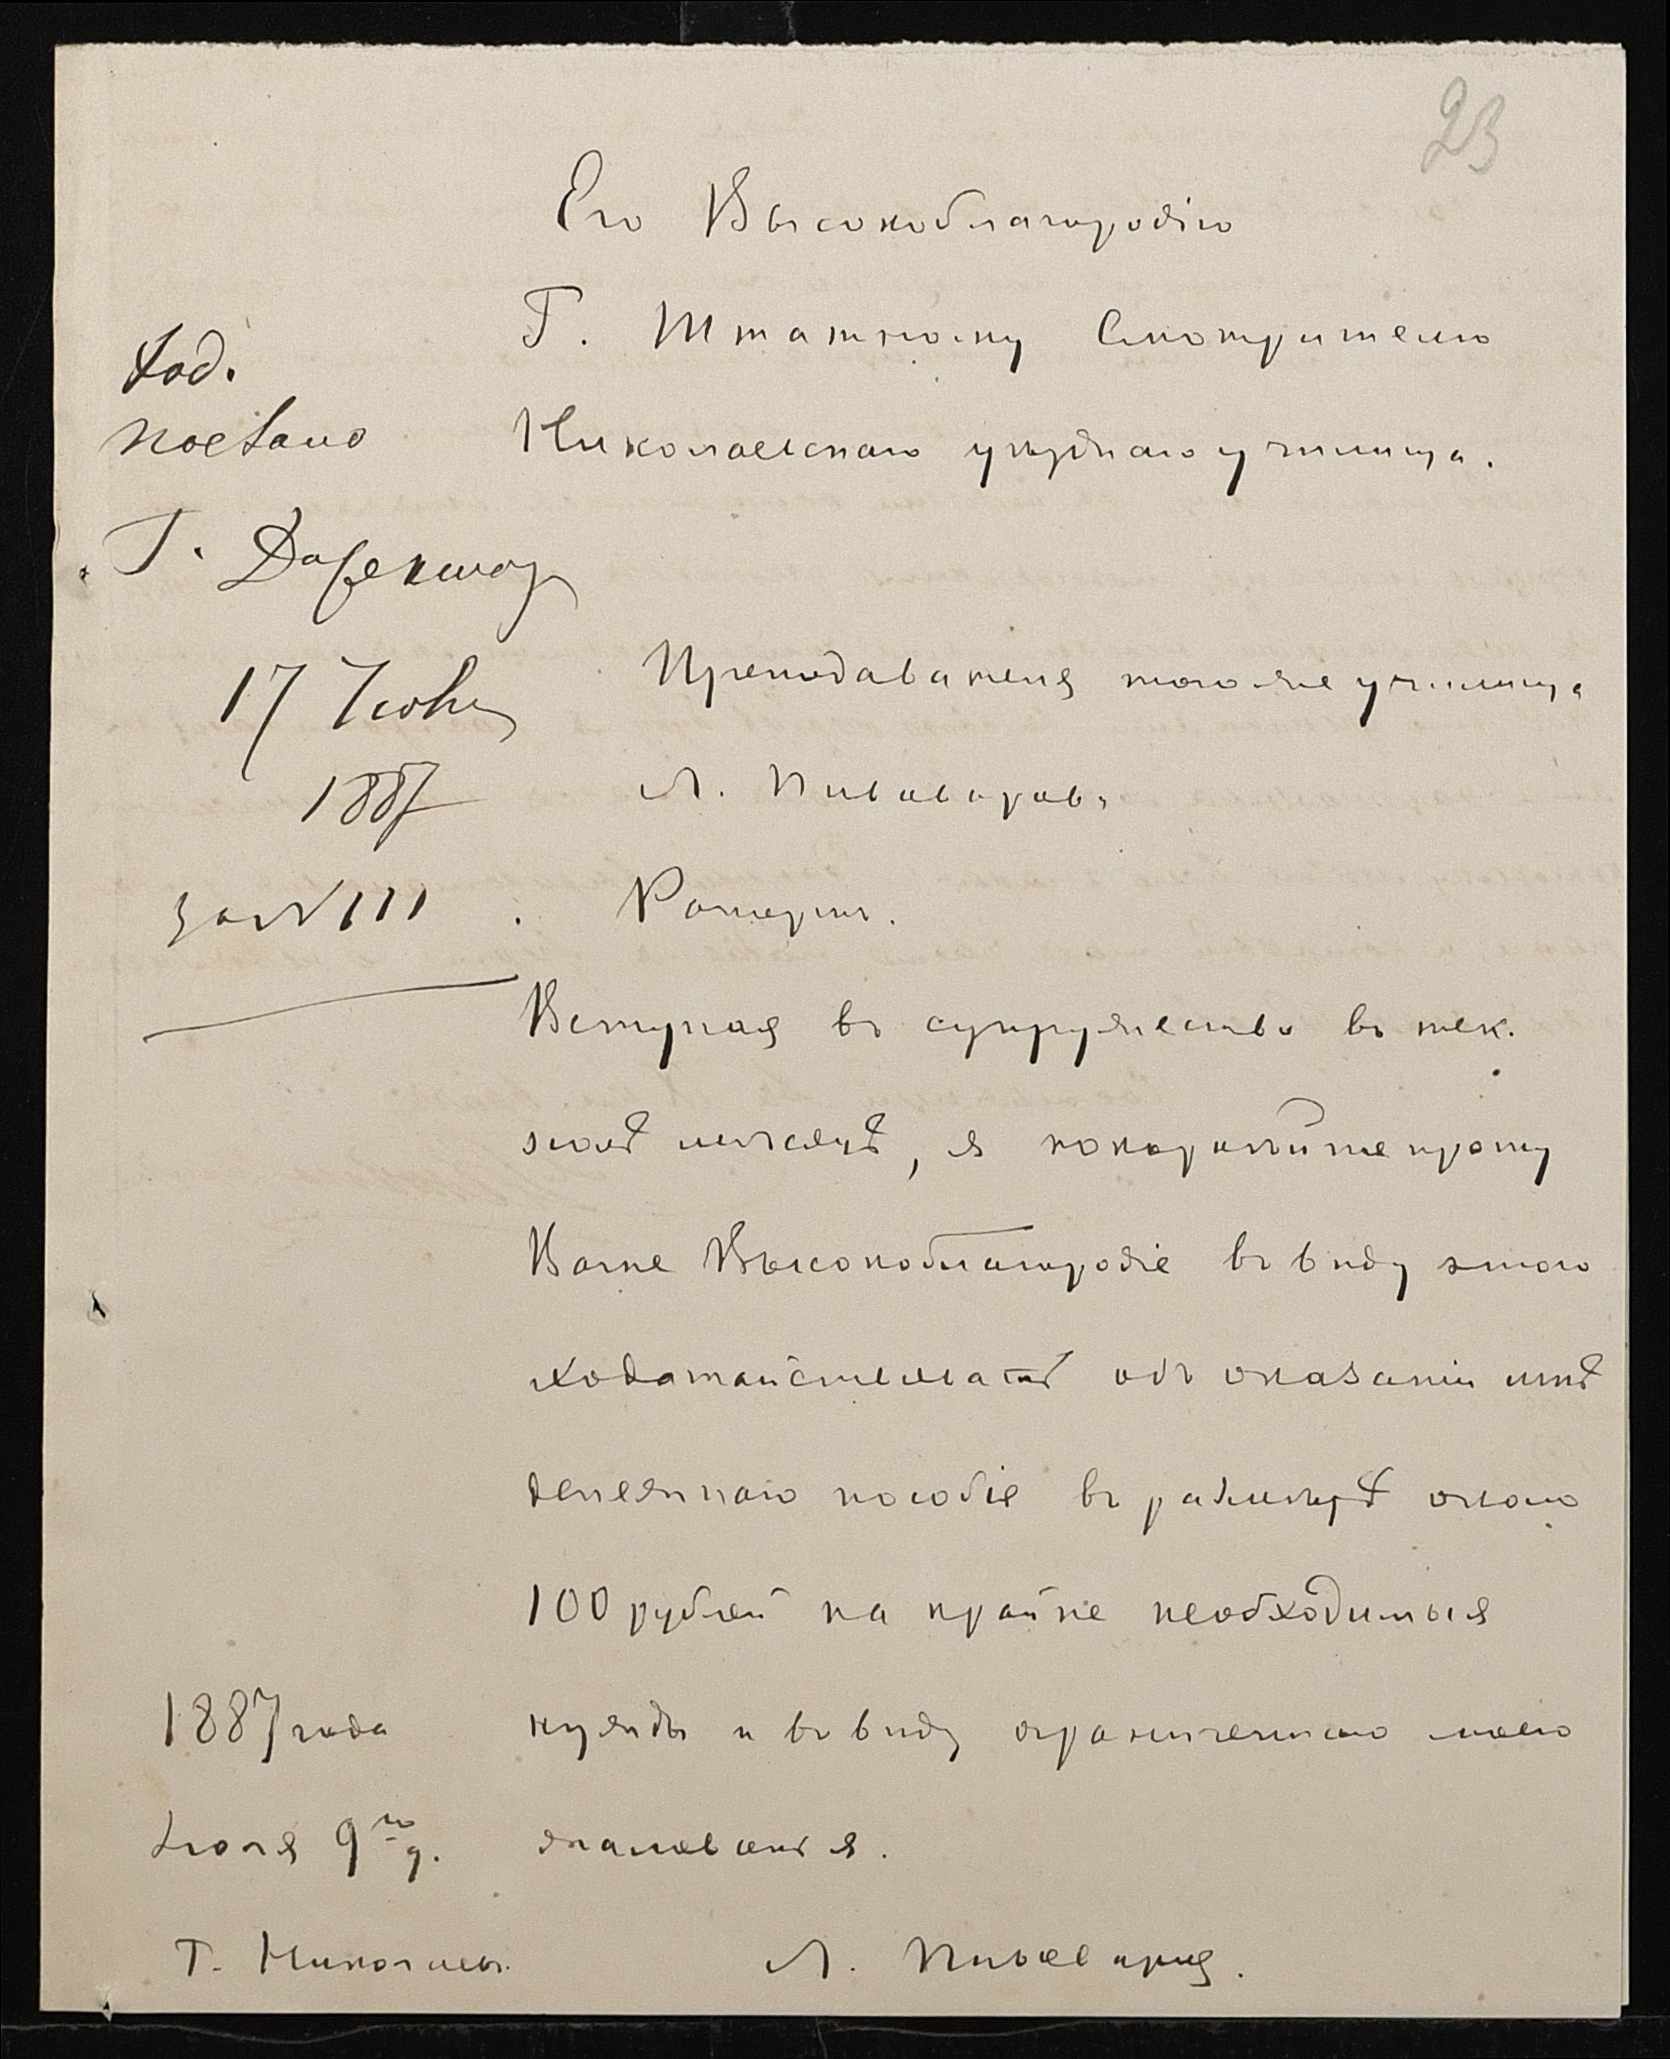 23
Его Высокоблагородію
Г. Штатному Смотрителю
Николаевскаго уѣзднаго училища.
Ход.
послано
Г. Директор
17 Іюня
1887
за № 111
Преподавателя того же училища
Л. Пивоварова
Рапортъ.
Вступая въ супружество въ тек.
этомъ мѣсяцѣ, я покорнѣйше прошу
Ваше Высокоблагородіе въ виду этого
ходатайствовать объ оказаніи мнѣ
денежнаго пособія въ размѣрѣ около
100 рублей на крайне необходимыя
нужды и въ виду ограниченнаго моего
жалованья.
1887 года
Іюня 9го д.
Г. Николаевъ.
Л. Пивоваровъ.